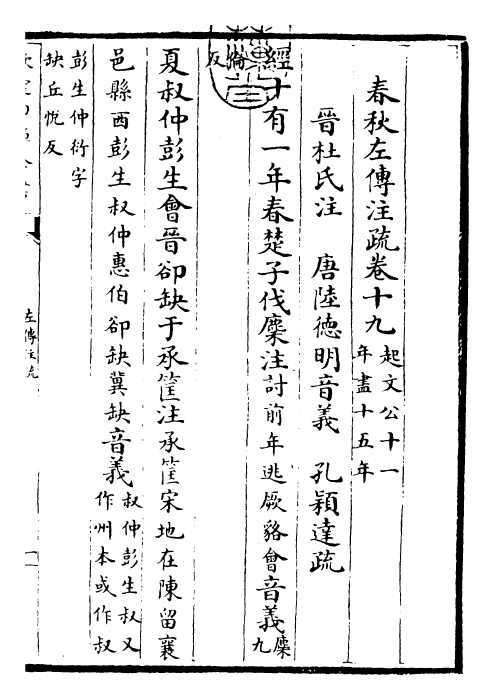 春秋左傳注疏卷十九
起文公十一
年盡十五年
晉杜氏注 唐陸德明音義 孔穎達疏
經十有一年春楚子伐麇注討前年逃厥貉會音義
麇
九
倫
反
夏叔仲彭生會晉郤缺于承筐注承筐宋地在陳留襄
邑縣西彭生叔仲惠伯郤缺冀缺音義
叔仲彭生叔又
作州本或作叔
彭生仲衍字
缺丘悅反
左傳注疏
一